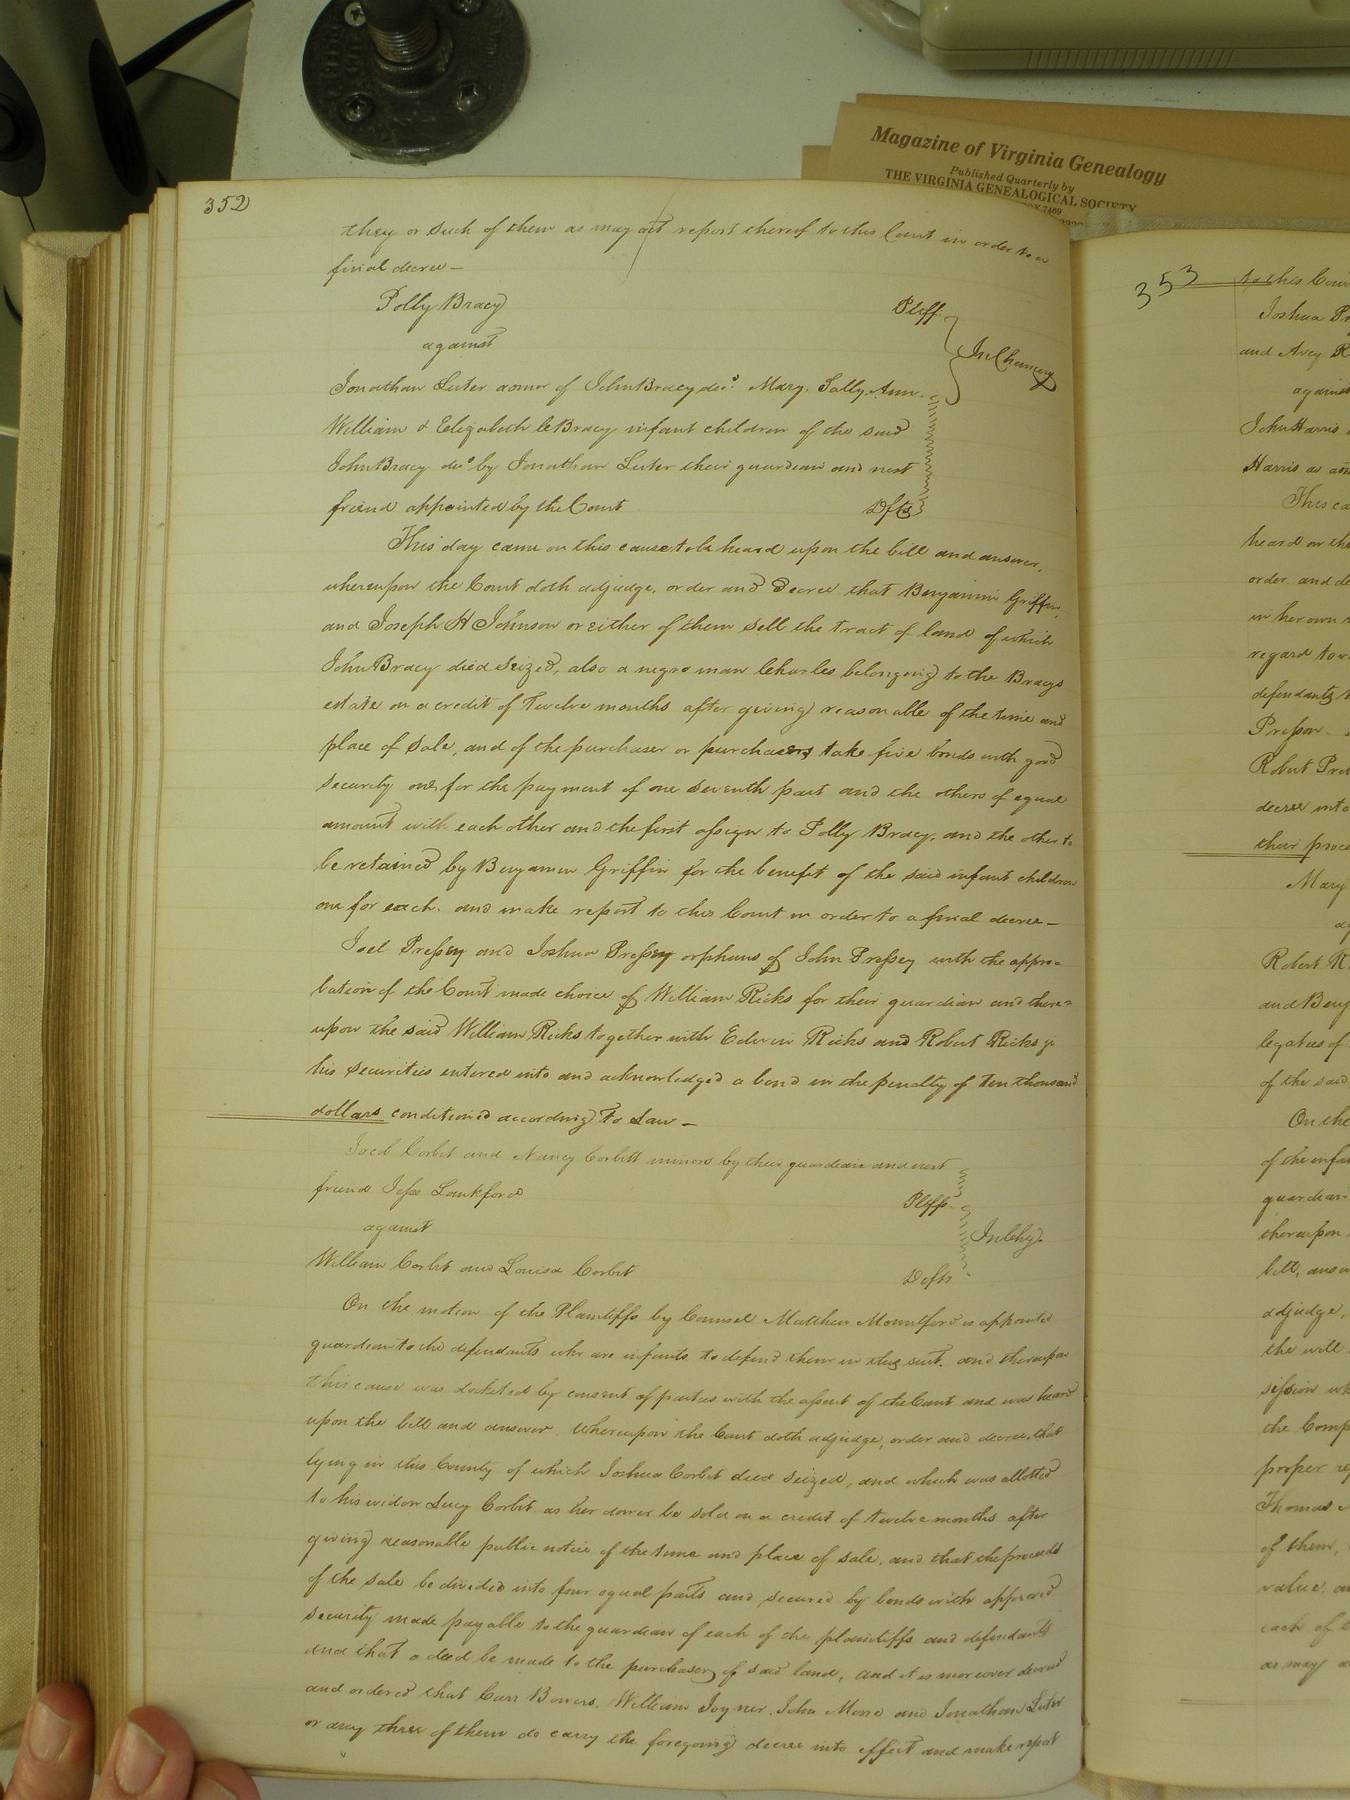 Magazine of Virginia Genealogy
Published Quarterly by
THE VIRGINIA GENEALOGICAL SOCIETY
352
they or such of them as may act report thereof to this Court in order to a
final decree —
Polly Bracy Pltff
against In Chancery
Jonathan Luter admor of John Bracy decd. Mary, Sally, Ann
William & Elizabeth Bracy infant children of the said
John Bracy decd by Jonathan Luter their guardian and next
friend appointed by the Court Defts
This day came on this cause to be heard upon the bill and answer,
whereupon the Court doth adjudge, order and decree that Benjamin Griffin
and Joseph H Johnson or either of them sell the tract of land of which
John Bracy died seized, also a negro man Charles belonging to the Bracys
estate on a credit of twelve months after giving reasonable of the time and
place of sale, and of the purchaser or purchasers take five bonds with good
security one for the payment of one seventh part and the others of equal
amount with each other and the first assign to Polly Bracy, and the other to
be retained by Benjamin Griffin for the benefit of the said infant children
one for each. and make report to this Court in order to a final decree —
Joel Pressey and Joshua Pressey orphans of John Pressey with the appro=
bation of the Court made choice of William Ricks for their guardian and there=
upon the said William Ricks together with Edwin Ricks and Robert Ricks jr
his securities entered into and acknowledged a bond in the penalty of Ten thousand
dollars conditioned according to Law —
Jacob Corbit and Nancy Corbitt minors by their guardian and next
friend Jesse Lankford Pltffs
against In Chy.
William Corbit and Louisa Corbit Defts
On the motion of the Plaintiffs by Counsel Matthew Mountford is appointed
guardian to the defendants who are infants to defend them in this suit. and thereupon
this cause was docketed by consent of parties with the assent of the Court and was heard
upon the bill and answer. Whereupon the Court doth adjudge, order and decree, that
lying in this County of which Joshua Corbit died seized, and which was allotted
to his widow Lucy Corbit as her dower be sold on a credit of twelve months after
giving reasonable public notice of the time and place of sale, and that the proceeds
of the sale be divided into four equal parts and secured by bonds with approved
security made payable to the guardian of each of the plaintiffs and defendants
and that a deed be made to the purchaser of said land, and it is moreover decreed
and ordered that Carr Bowers, William Joyner, John Moore and Jonathan Luter
or any three of them do carry the foregoing decree into effect and make report
353
to this Cour
Joshua Pr
and Avey R
against
John Harris
Harris as
This ca
heard on the
order and de
in her own
regard to
defendants
Presson
Robert Pre
decree into
their proce
Mary
Robert R
and Benj
legatees of
of the said
On the
of the infa
guardian
thereupon
bill, answ
adjudge,
the will
session wh
the Comp
proper re
Thomas
of them,
value, an
each of t
as may a